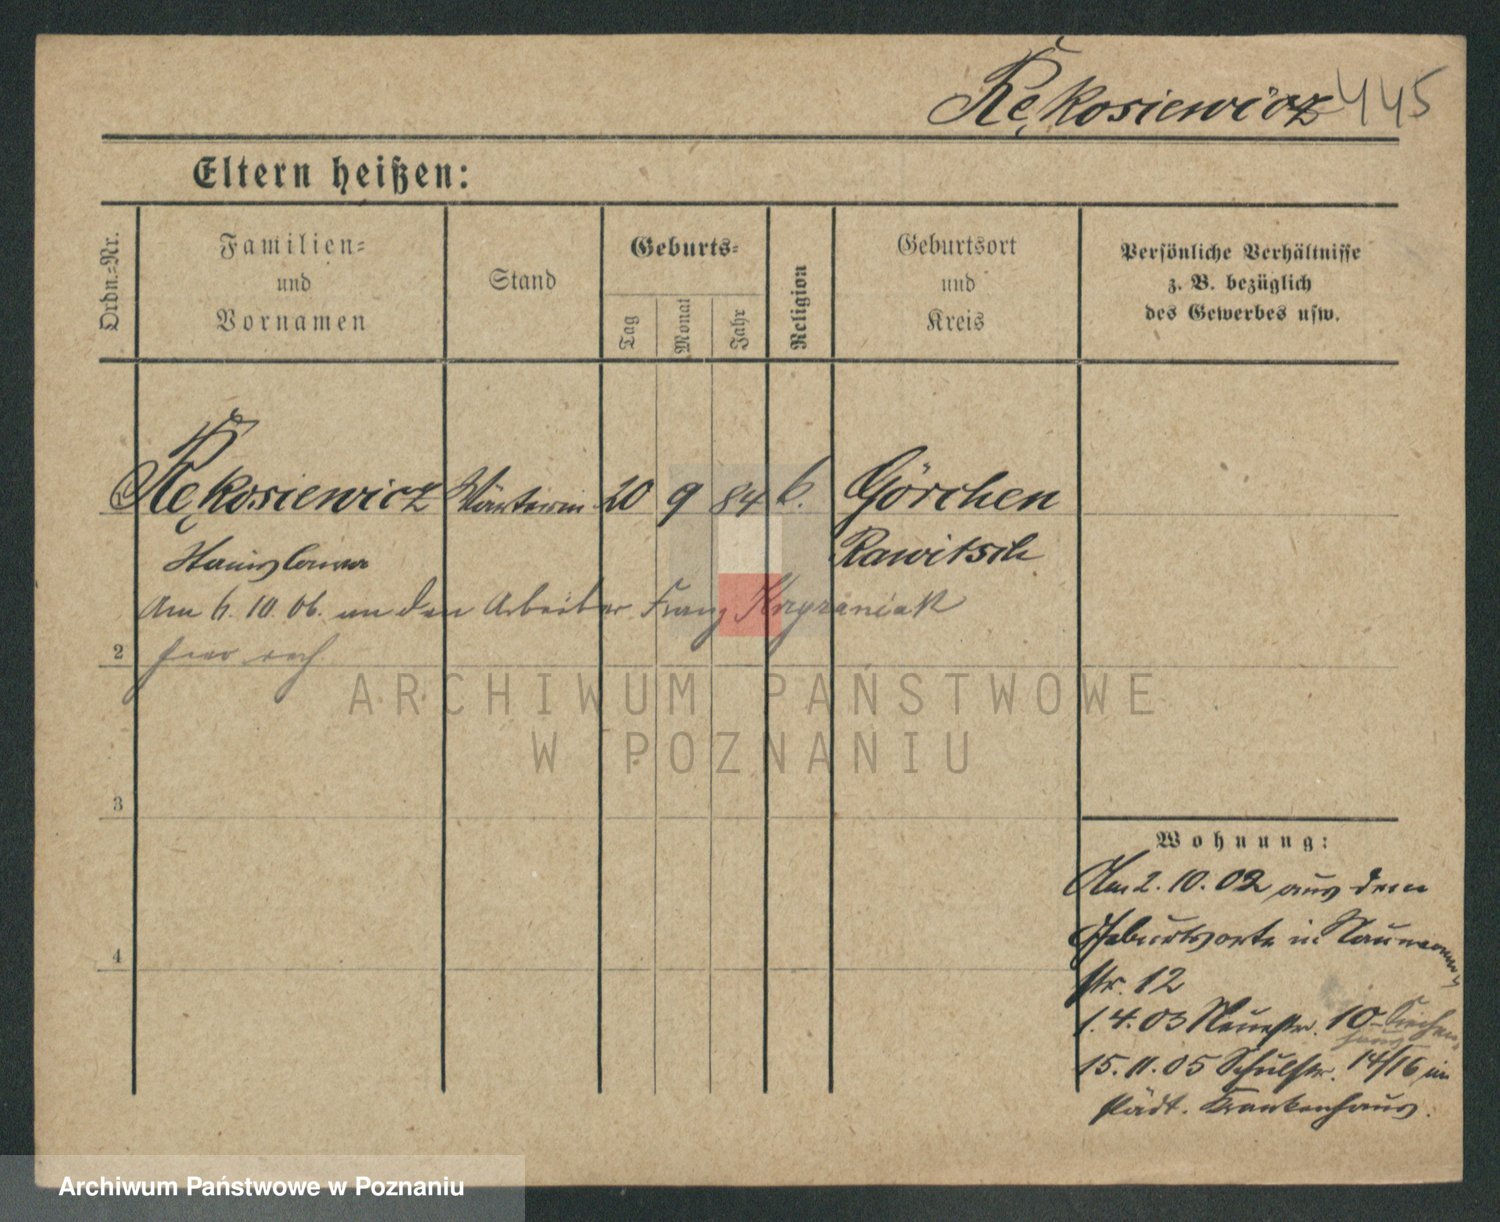 Rękosiewicz 445
Eltern heißen:
Ordn.-Nr.
Familien-
und
Vornamen
Stand
Geburts-
Tag
Monat
Jahr
Religion
Geburtsort
und
Kreis
Persönliche Verhältnisse
z. B. bezüglich
des Gewerbes usw.
Rękosiewicz Wärterin 20 9 84 k. Görchen
Stanislawa Rawitsch
Am 6. 10. 06. an den Arbeiter Franz Krzyżaniak
hier verh.
2
ARCHIWUM PAŃSTWOWE
W POZNANIU
3
4
Wohnung:
Am 2. 10. 02 aus dem
Geburtsorte in Naumann
str. 12
1. 4. 03 Neuestr. 10
15. 11. 05 Schulstr. 14/16 im
städt. Krankenhaus.
Archiwum Państwowe w Poznaniu